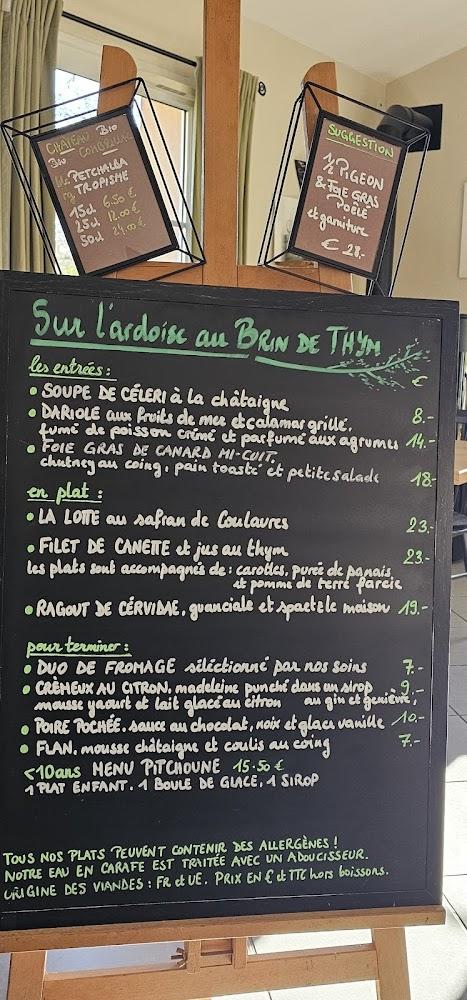 CHATEAU Bio
Bio
PETCHALBA
TROPISME
15cl 6.50 €
25cl 12.00 €
50cl 24.00 €
SUGGESTION
1/2 PIGEON
& FOIE GRAS
POÊLÉ
et garniture
€ 28.-
Sur l'ardoise au BRIN DE THYM
les entrées : €
• SOUPE DE CÉLERI à la châtaigne 8.-
• DARIOLE aux fruits de mer et calamar grillé,
fumé de poisson crémé et parfumé aux agrumes 14.-
• FOIE GRAS DE CANARD MI-CUIT,
chutney au coing, pain toasté et petite salade 18-
en plat :
• LA LOTTE au safran de Coulaures 23.-
• FILET DE CANETTE et jus au thym 23.-
les plats sont accompagnés de : carottes, purée de panais,
et pomme de terre farcie
• RAGOUT DE CÉRVIDAE, guanciale et spaetzle maison 19.-
pour terminer :
• DUO DE FROMAGE sélectionné par nos soins 7.-
• CRÈMEUX AU CITRON, madeleine punché dans un sirop 9.-
mousse yaourt et lait glacé au citron au gin et genièvre,
• POIRE POCHÉE, sauce au chocolat, noix et glace vanille 10.-
• FLAN, mousse châtaigne et coulis au coing 7.-
<10ans MENU PITCHOUNE 15.50 €
1 PLAT ENFANT, 1 BOULE DE GLACE, 1 SIROP
TOUS NOS PLATS PEUVENT CONTENIR DES ALLERGÈNES !
NOTRE EAU EN CARAFE EST TRAITÉE AVEC UN ADOUCISSEUR.
ORIGINE DES VIANDES : FR et UE. PRIX EN € et TTC hors boissons.